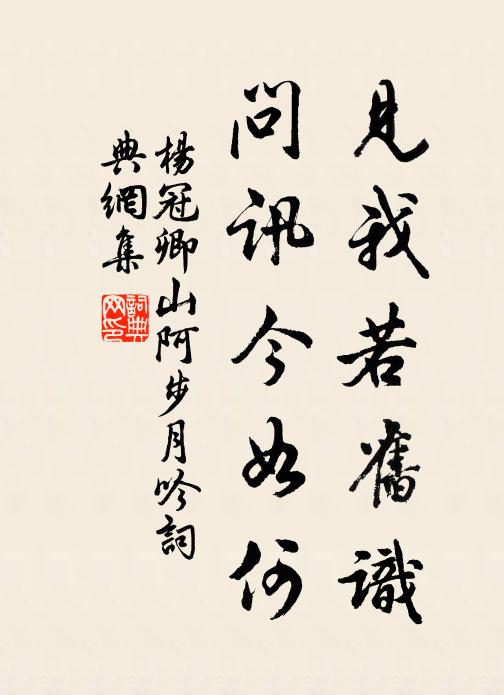 見我若舊識
問訊今如何
楊冠卿山阿步月吟詞
典網集
詞典
网印